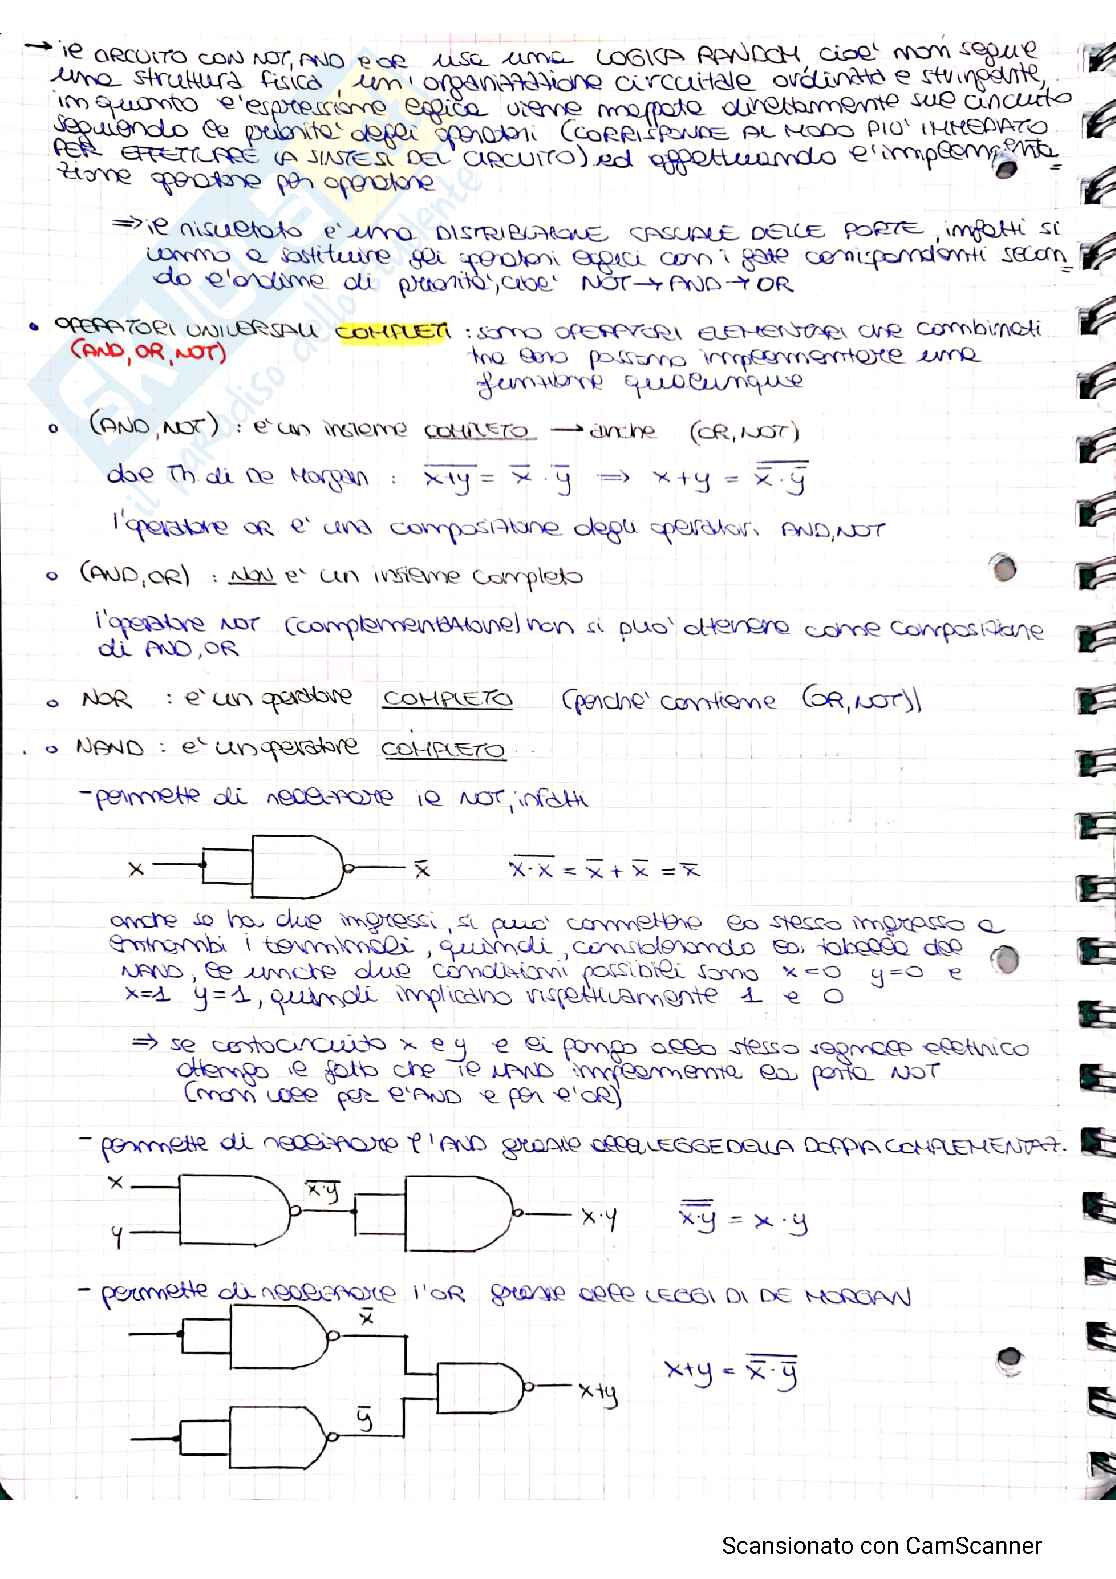 → il CIRCUITO CON NOT, AND e OR usa una LOGICA RANDOM, cioè non segue
una struttura fisica, un'organizzazione circuitale ordinata e stringente,
in quanto l'espressione logica viene mappata direttamente sul circuito
seguendo le priorità degli operatori (CORRISPONDE AL MODO PIU' IMMEDIATO
PER EFFETTUARE LA SINTESI DEL CIRCUITO) ed effettuando l'implementa
zione operatore per operatore
⇒ il risultato è una DISTRIBUZIONE CASUALE DELLE PORTE, infatti si
vanno a sostituire gli operatori logici con i gate corrispondenti secon
do l'ordine di priorità, cioè NOT → AND → OR
• OPERATORI UNIVERSALI COMPLETI : sono OPERATORI ELEMENTARI che combinati
(AND, OR, NOT) tra loro possono implementare una
funzione qualunque
o (AND, NOT) : è un insieme COMPLETO → anche (OR, NOT)
dal Th. di De Morgan : \overline{x+y} = x̅ · y̅ ⇒ x+y = \overline{x̅ · y̅}
l'operatore OR è una composizione degli operatori AND, NOT
o (AND, OR) : NON è un insieme completo
l'operatore NOT (complementazione) non si può ottenere come composizione
di AND, OR
o NOR : è un operatore COMPLETO (perchè contiene (OR, NOT))
o NAND : è un operatore COMPLETO
- permette di realizzare il NOT, infatti
x x̅ \overline{x·x} = x̅ + x̅ = x̅
anche se ha due ingressi, si può connettere lo stesso ingresso a
entrambi i terminali, quindi, considerando la tabella del
NAND, le uniche due condizioni possibili sono x=0 y=0 e
x=1 y=1, quindi implicano rispettivamente 1 e 0
⇒ se cortocircuito x e y e li pongo allo stesso segnale elettrico
ottengo il fatto che il NAND implementa la porta NOT
(non vale per l'AND e per l'OR)
- permette di realizzare l'AND grazie alla LEGGE DELLA DOPPIA COMPLEMENTAZ.
x \overline{x·y} x·y \overline{\overline{x·y}} = x · y
y
- permette di realizzare l'OR grazie alle LEGGI DI DE MORGAN
x̅
x+y x+y = \overline{x̅ · y̅}
y̅
Scansionato con CamScanner